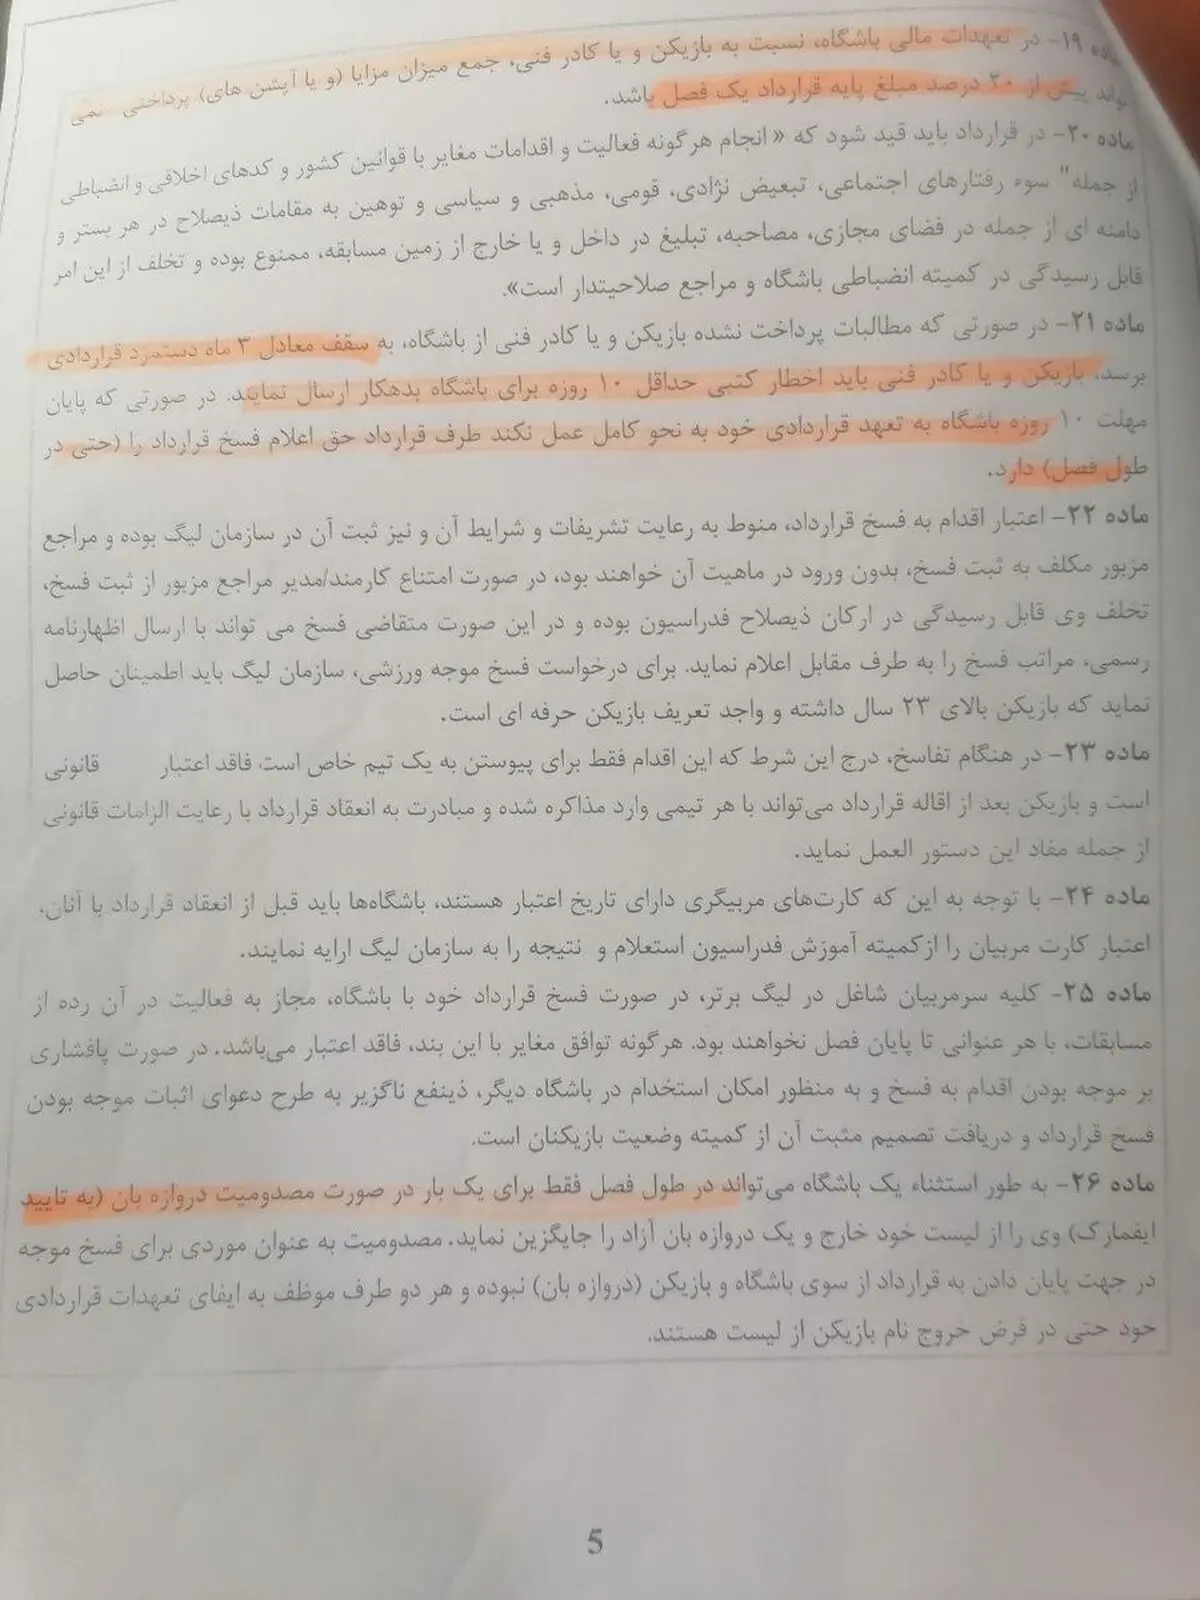 ماده ۱۹- در تعهدات مالی باشگاه، نسبت به بازیکن و یا کادر فنی، جمع میزان مزایا (و یا آپشن های) پرداختی نمی
تواند بیش از ۲۰ درصد مبلغ پایه قرارداد یک فصل باشد.
ماده ۲۰- در قرارداد باید قید شود که « انجام هرگونه فعالیت و اقدامات مغایر با قوانین کشور و کدهای اخلاقی و انضباطی
از جمله" سوء رفتارهای اجتماعی، تبعیض نژادی، قومی، مذهبی و سیاسی و توهین به مقامات ذیصلاح در هر بستر و
دامنه ای از جمله در فضای مجازی، مصاحبه، تبلیغ در داخل و یا خارج از زمین مسابقه، ممنوع بوده و تخلف از این امر
قابل رسیدگی در کمیته انضباطی باشگاه و مراجع صلاحیتدار است».
ماده ۲۱- در صورتی که مطالبات پرداخت نشده بازیکن و یا کادر فنی از باشگاه، به سقف معادل ۳ ماه دستمزد قراردادی
برسد، بازیکن و یا کادر فنی باید اخطار کتبی حداقل ۱۰ روزه برای باشگاه بدهکار ارسال نمایند. در صورتی که پایان
مهلت ۱۰ روزه باشگاه به تعهد قراردادی خود به نحو کامل عمل نکند طرف قرارداد حق اعلام فسخ قرارداد را (حتی در
طول فصل) دارد.
ماده ۲۲- اعتبار اقدام به فسخ قرارداد، منوط به رعایت تشریفات و شرایط آن و نیز ثبت آن در سازمان لیگ بوده و مراجع
مزبور مکلف به ثبت فسخ، بدون ورود در ماهیت آن خواهند بود، در صورت امتناع کارمند/مدیر مراجع مزبور از ثبت فسخ،
تخلف وی قابل رسیدگی در ارکان ذیصلاح فدراسیون بوده و در این صورت متقاضی فسخ می تواند با ارسال اظهارنامه
رسمی، مراتب فسخ را به طرف مقابل اعلام نماید. برای درخواست فسخ موجه ورزشی، سازمان لیگ باید اطمینان حاصل
نماید که بازیکن بالای ۲۳ سال داشته و واجد تعریف بازیکن حرفه ای است.
ماده ۲۳- در هنگام تفاسخ، درج این شرط که این اقدام فقط برای پیوستن به یک تیم خاص است فاقد اعتبار قانونی
است و بازیکن بعد از اقاله قرارداد می‌تواند با هر تیمی وارد مذاکره شده و مبادرت به انعقاد قرارداد با رعایت الزامات قانونی
از جمله مفاد این دستور العمل نماید.
ماده ۲۴- با توجه به این که کارت‌های مربیگری دارای تاریخ اعتبار هستند، باشگاه‌ها باید قبل از انعقاد قرارداد با آنان،
اعتبار کارت مربیان را ازکمیته آموزش فدراسیون استعلام و نتیجه را به سازمان لیگ ارایه نمایند.
ماده ۲۵- کلیه سرمربیان شاغل در لیگ برتر، در صورت فسخ قرارداد خود با باشگاه، مجاز به فعالیت در آن رده از
مسابقات، با هر عنوانی تا پایان فصل نخواهند بود. هرگونه توافق مغایر با این بند، فاقد اعتبار می‌باشد. در صورت پافشاری
بر موجه بودن اقدام به فسخ و به منظور امکان استخدام در باشگاه دیگر، ذینفع ناگزیر به طرح دعوای اثبات موجه بودن
فسخ قرارداد و دریافت تصمیم مثبت آن از کمیته وضعیت بازیکنان است.
ماده ۲۶- به طور استثناء یک باشگاه می‌تواند در طول فصل فقط برای یک بار در صورت مصدومیت دروازه بان (به تایید
ایفمارک) وی را از لیست خود خارج و یک دروازه بان آزاد را جایگزین نماید. مصدومیت به عنوان موردی برای فسخ موجه
در جهت پایان دادن به قرارداد از سوی باشگاه و بازیکن (دروازه بان) نبوده و هر دو طرف موظف به ایفای تعهدات قراردادی
خود حتی در فرض خروج نام بازیکن از لیست هستند.
5